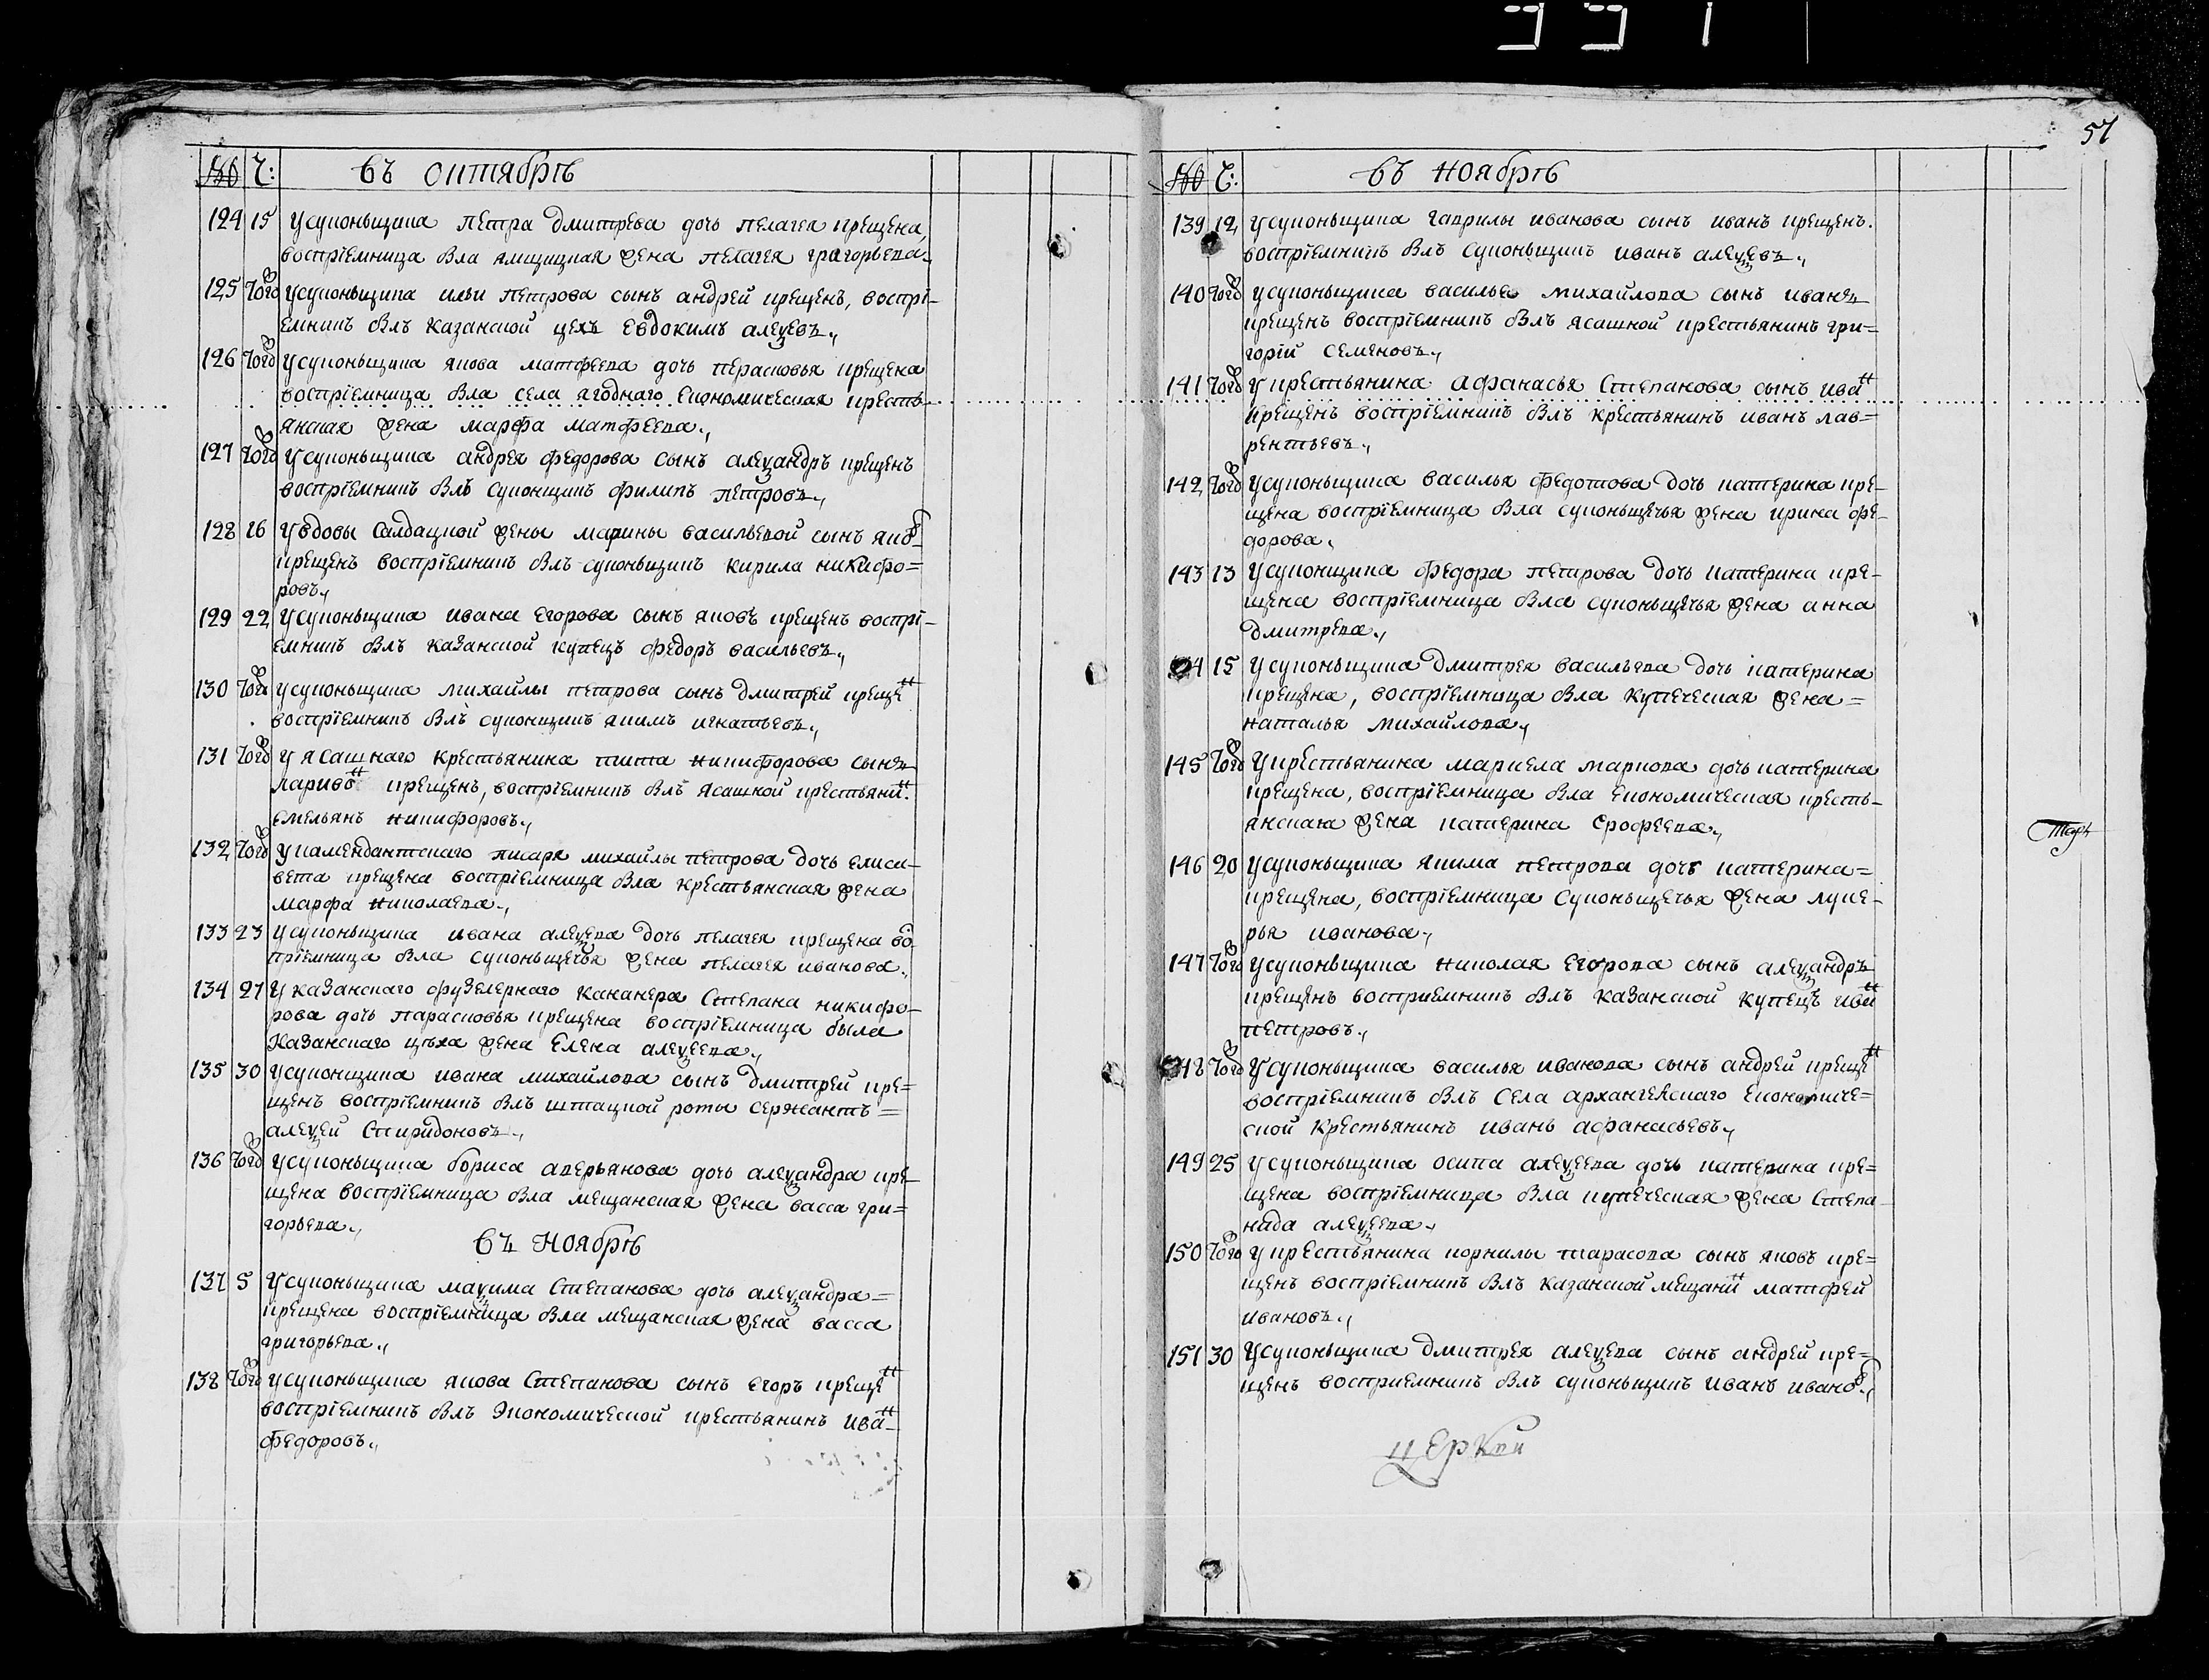 57
№ Ч: въ октябрѣ
124 15 У суконьщика петра дмитрева дочь пелагея крещена,
восприемница была ямщицкая жена пелагея григорьева.,
125 Тогож У суконьщика ильи петрова сынъ андрей крещенъ, воспрі-
емникъ былъ казанской цехъ евдокимъ алеѯевъ.,
126 Тогож У суконьщика якова матфеева дочь парасковья крещена
воспріемница была села ягоднаго економическая кресть-
янская жена марфа матфеева.,
127 Тогож У суконьщика андрея федорова сынъ алеѯандръ крещенъ
воспріемникъ былъ суконщикъ филипъ петровъ.,
128 16 У вдовы салдацкой жены марины васильевой сынъ яков
крещенъ воспріемникъ былъ суконьщикъ кирила никифо=
ровъ.,
129 22 У суконьщика ивана егорова сынъ яковъ крещенъ воспрі-
емникъ былъ казанской купецъ федоръ васильевъ.,
130 Тогож У суконьщика михайлы петрова сынъ дмитрей крещен
воспріемникъ былъ суконщикъ якимъ игнатьевъ.,
131 Тогож У ясашнаго крестьянина тита никифорова сынъ
ларивон крещенъ, воспріемникъ былъ ясашной крестьянин.
емельянъ никифоровъ.,
132 Тогож У камендантскаго писаря михайлы петрова дочь елиса-
вета крещена воспріемница была крестьянская жена
марфа николаева.,
133 23 У суконьщика ивана алеѯева дочь пелагея крещена во-
пріемница была суконьщечья жена пелагея иванова.,
134 27 У казанскаго фузелернаго кананера степана никифо-
рова дочь парасковья крещена воспріемница была
казанскаго цѣха жена елена алеѯеева.,
135 30 У суконщика ивана михайлова сынъ дмитрей кре=
щенъ воспріемникъ былъ штацкой роты сержантъ=
алеѯей спиридоновъ.,
136 Тогож У суконьщика бориса аверьянова дочь алеѯандра кре
щена воспріемница была мещанская жена васса гри=
горьева.,
въ ноябрѣ
137 5 У суконьщика маѯима степанова дочь алеѯандра=
крещена воспріемница была мещанская жена васса
григорьева.,
138 Тогож У суконьщика якова степанова сынъ егоръ крещен
воспріемникъ былъ экономической крестьянинъ иван-
федоровъ.,
№ Ч: въ ноябрѣ
139 12 У суконьщика гаврилы иванова сынъ иванъ крещенъ.
воспріемникъ былъ суконьщикъ иванъ алеѯевъ.,
140 Тогож У суконьщика василья михайлова сынъ иванъ
крещенъ воспріемникъ былъ ясашной крестьянинъ гри=
горій семеновъ.,
141 Тогож У крестьянина афанасья степанова сынъ иван
крещенъ воспріемникъ былъ крестьянинъ иванъ лав=
рентьевъ.,
142 Тогож У суконьщика василья федотова дочь катерина кре-
щена воспріемница была суконьщечья жена ирина фе-
дорова.
143 13 У суконщика федора петрова дочь катерина кре-
щена воспріемница была суконьщечья жена анна
дмитрева.,
15 У суконьщика дмитрея васильева дочь катерина
крещена, воспріемница была купеческая жена=
наталья михайлова.,
145 Тогож У крестьянина маркела маркова дочь катерина
крещена, воспріемница была економическая кресть-
янская жена катерина ерофеева.,
146 20 У суконьщика якима петрова дочь катерина=
крещена, воспріемница суконьщечья жена луке-
рья иванова.,
147 Тогож У суконьщика николая егорова сынъ алеѯандръ
крещенъ восприемникъ былъ казанской купецъ иван
петровъ.,
148 Тогож У суконьщика василья иванова сынъ андрей крещен
воспріемникъ былъ села архангельскаго економиче=
ской крестьянинъ иванъ афанасьевъ.,
149 25 У суконьщика осипа алеѯеева дочь катерина кре=
щена воспріемница была купеческая жена степа-
нида алеѯеева.,
150 Тогож У крестьянина корнилы тарасова сынъ яковъ кре=
щенъ воспріемникъ былъ казанской мещанин матфей
ивановъ.,
151 30 У суконьщика дмитрея алеѯева сынъ андрей кре=
щенъ восприемникъ былъ суконьщикъ иванъ иванов.,
церкви